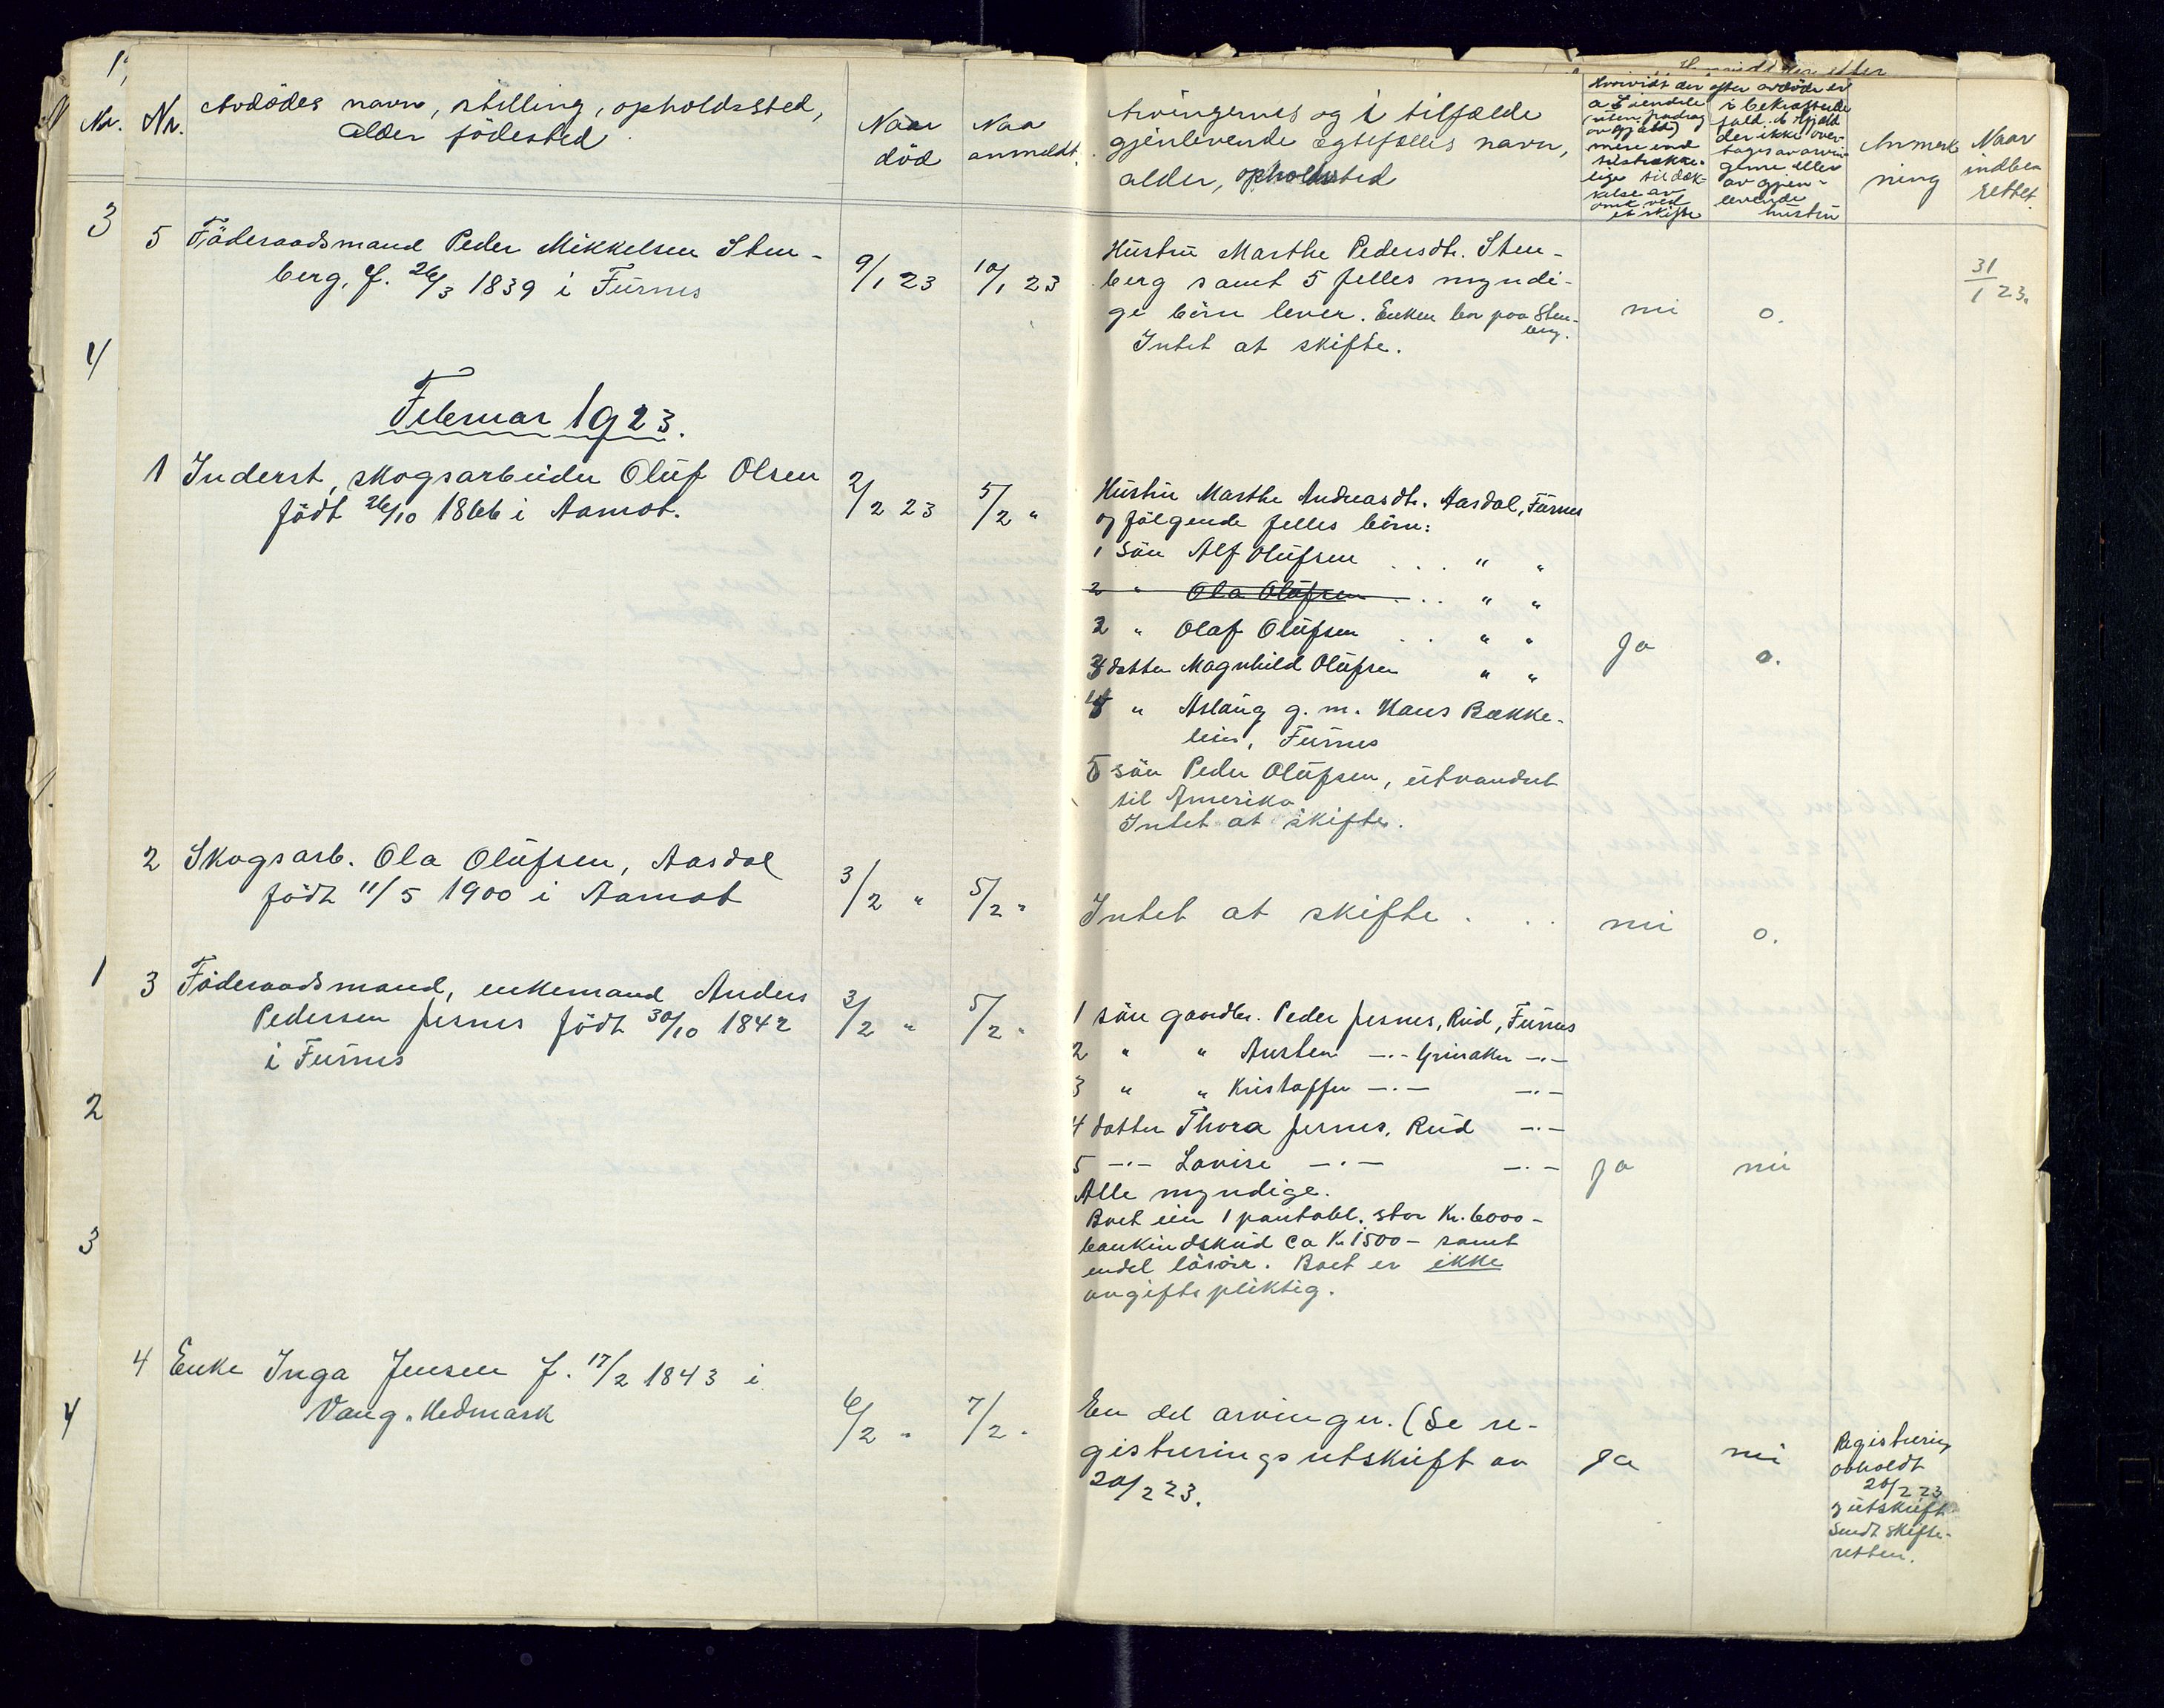 Nr. Avdödes navn, stilling, opholdssted,
alder födested
Naar
död
Naa
anmeldt.
Arvingernes og i tilfælde
gjenlevende egtefælles navn,
alder, opholdssted
Hvorvidt der efter avdöde er
a Eiendele
(uten fradrag
av gjæld)
mere end
tilstrække-
lige til dæk-
kelse av
omk. ved
et skifte
i bekræftende
fald. b Gjæld
der ikke over-
tages av arvin-
gerne eller
av gjen-
levende
hustru
Anmerk
ning
Naar
indbe-
rettet.
5 Föderaadsmand Peder Mikkelsen Sten-
berg, f. 26/3 1839 i Furnes
9/1 23
10/1 23
Hustru Marthe Pedersdt. Sten-
berg samt 5 felles myndi-
ge börn lever. Enken bor paa Sten-
berg.
Intet at skifte.
nei
o.
31/1 23.
Februar 1923.
1 Inderst, skogsarbeider Oluf Olsen
födt 26/10 1866 i Aamot.
2/2 23
5/2 "
Hustru Marthe Andreasdt. Aasdal, Furnes
og fölgende felles börn:
1 sön Alf Olufsen . . . " "
2 " Ola Olufsen . . . " "
2 " Olaf Olufsen . . " "
3 datter Magnhild Olufsen " "
4 " Aslaug g. m. Hans Bække-
lien, Furnes
5 sön Peder Olufsen, utvandret
til Amerika
Intet at skifte.
Ja
o.
2 Skogsarb. Ola Olufsen, Aasdal
födt 11/5 1900 i Aamot
3/2 "
5/2 "
Intet at skifte . . .
nei
o.
3 Föderaadsmand, enkemand Anders
Pedersen Jesnes födt 30/10 1842
i Furnes
3/2 "
5/2 "
1 sön gaardbr. Peder Jesnes, Rud, Furnes
2 " " Austen —"— Grinaker —"—
3 " " Kristoffer —"— —"—
4 datter Thora Jesnes, Rud —"—
5 —"— Lovise —"— —"—
Alle myndige.
Boet eier 1 pantobl. stor Kr. 6000-
bankindskud ca Kr 1500- samt
endel lösöre. Boet er ikke
avgiftspliktig.
Ja
nei
4 Enke Inga Jensen f. 17/2 1843 i
Vang. Hedmark
6/2 "
7/2 "
En del arvinger. (Se re-
gistreringsutskrift av
20/2 23.
Ja
nei
Registrering
avholdt
20/2 23
og utskrift
sendt skifte-
retten.